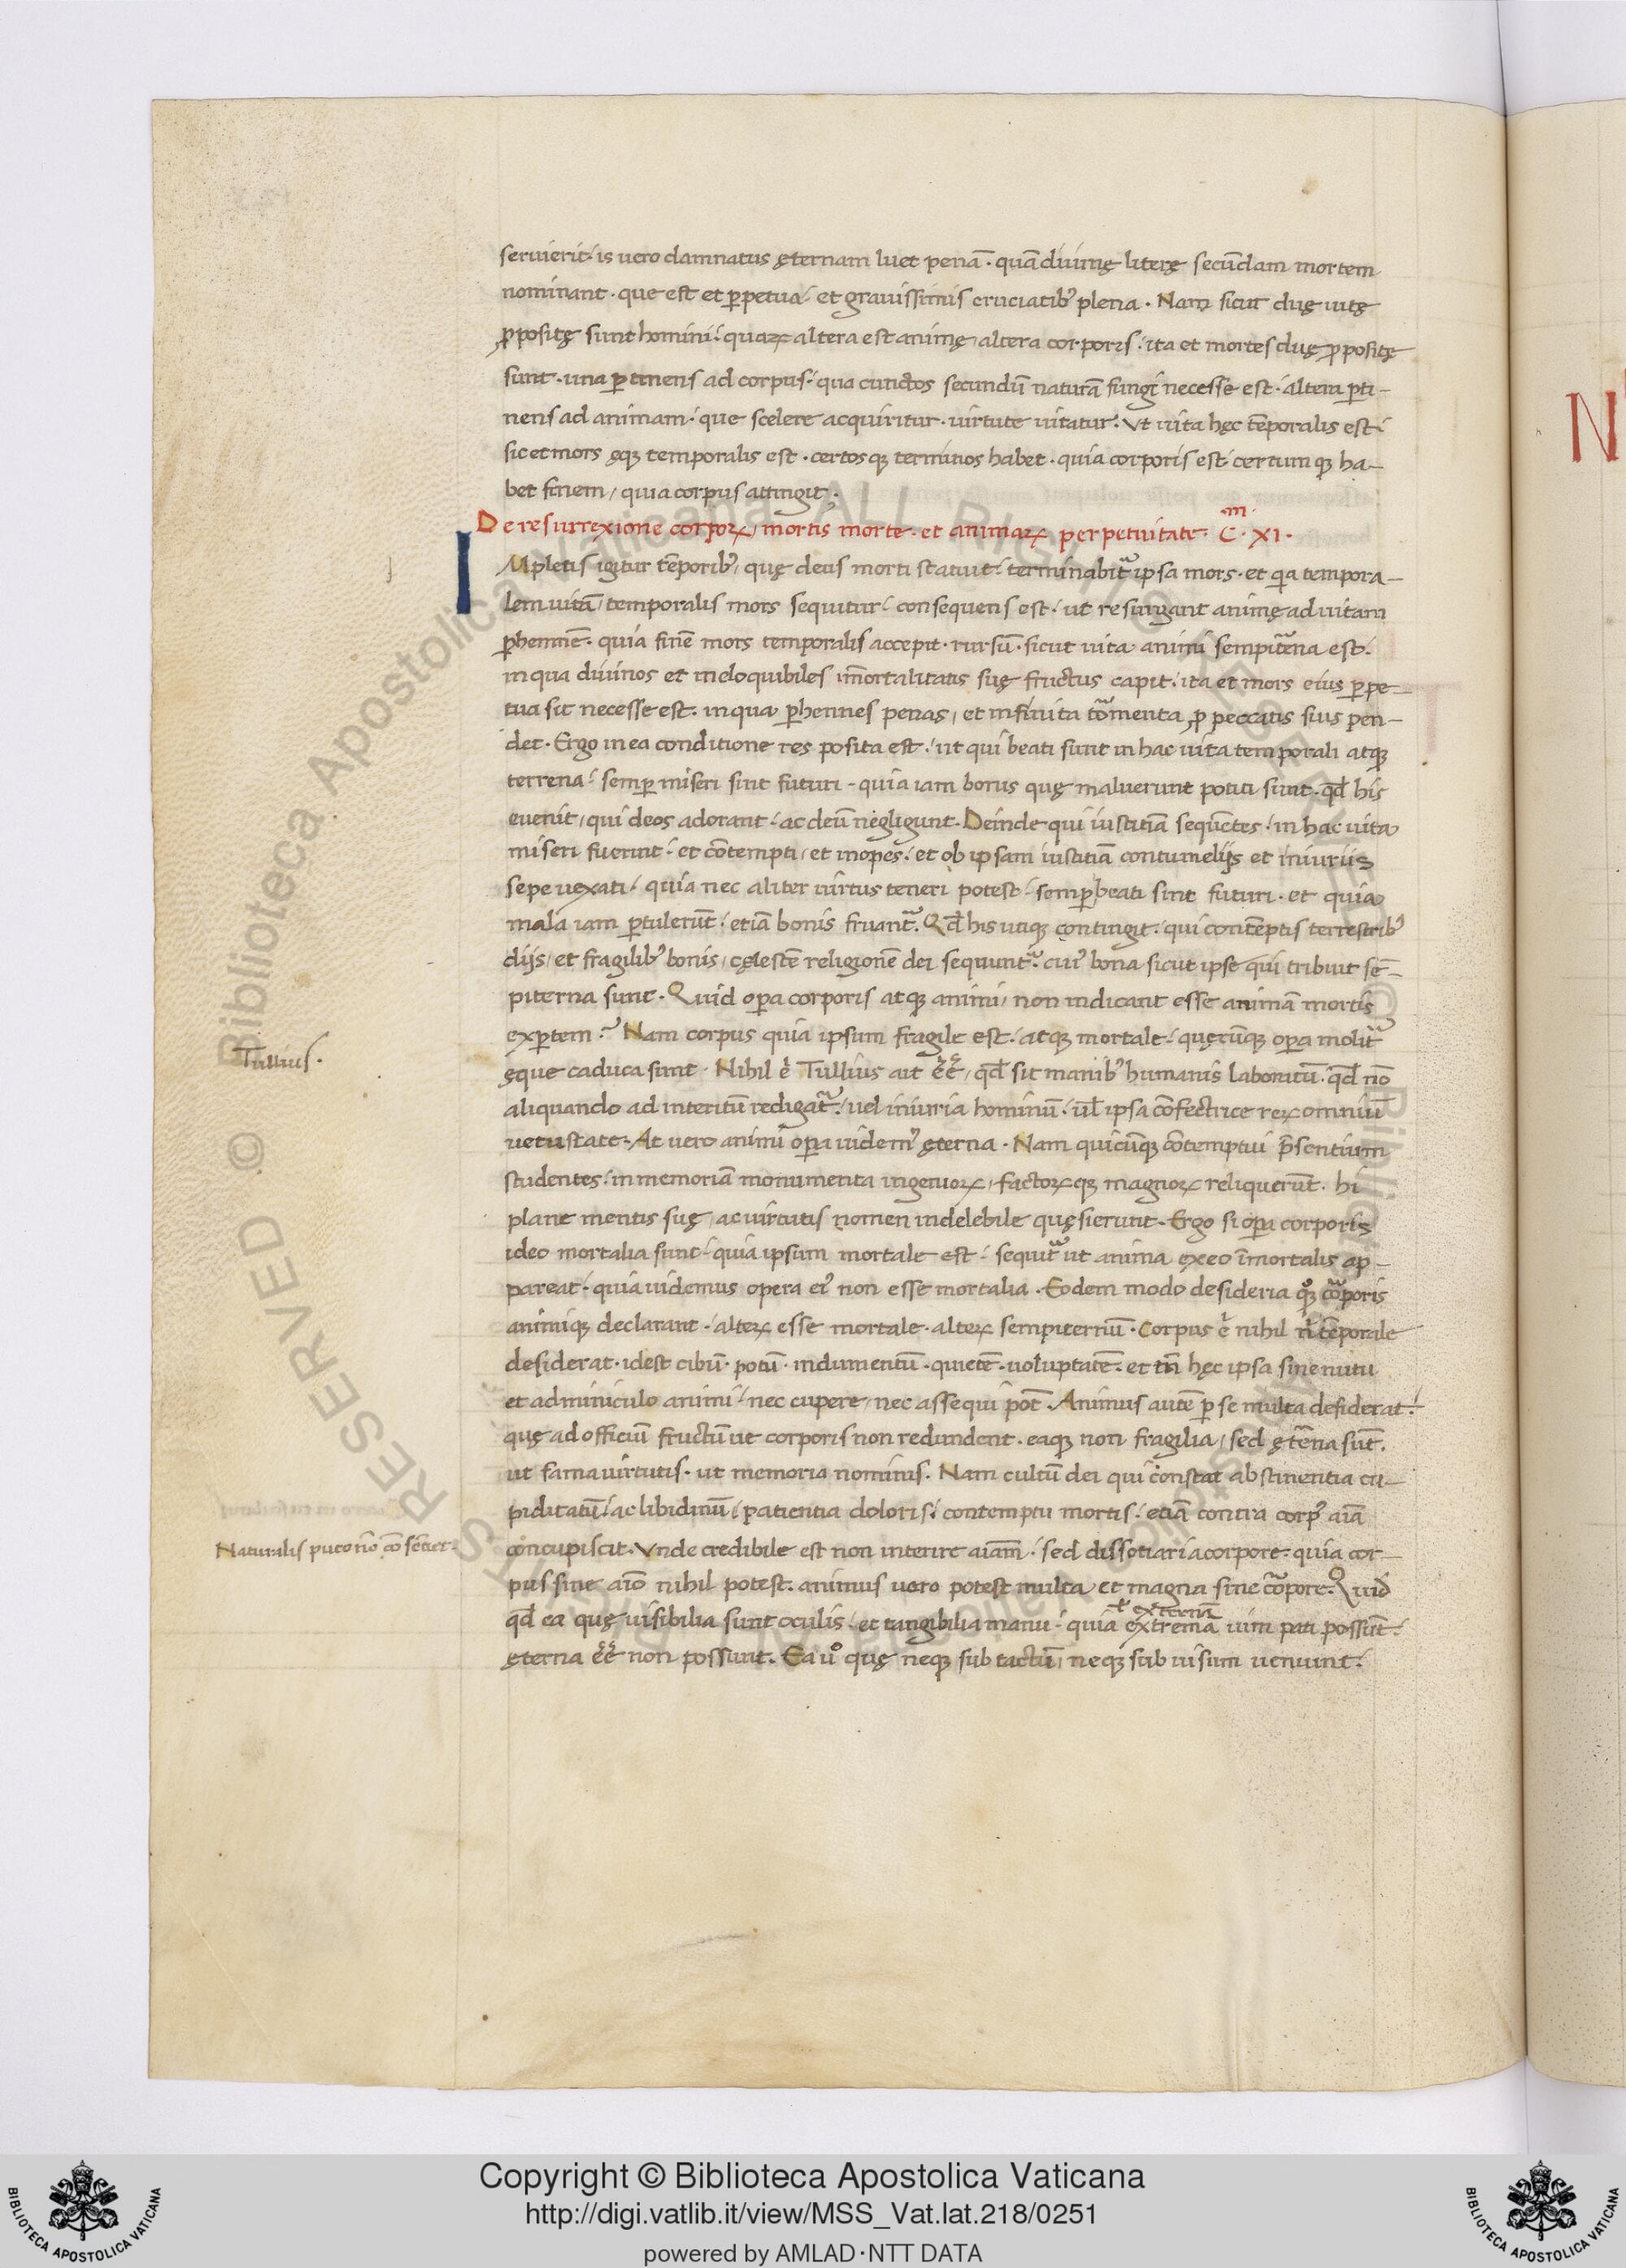 seruierit. is uero damnatus ęternam luet penā. quā diuinę literę secūdam mortem
nominant. que est et ꝑpetua. et grauissimis cruciatibꝰ plena. Nam sicut duę uitę
ꝓpositę sunt homini. quaꝝ altera est animę, altera corporis. ita et mortes duę ꝓpositę
sunt. una ꝑtinens ad corpus. qua cunctos secundū naturā fungi necesse est. altera ꝑti-
nens ad animam. que scelere acquiritur. uirtute uitatur. Vt uita hęc tēporalis est.
sic et mors ęqꝫ temporalis est. certosqꝫ terminos habet. quia corporis est. certumqꝫ ha-
bet finem, quia corpus attingit.
De resurrexione corpoꝝ, mortis morte. et animaꝝ perpetuitate. C.m XI.
IMpletis igitur tēporibꝰ, quę deus morti statuit. terminabit᷑ ipsa mors. et qa tempora-
lem uitā, temporalis mors sequitur. consequens est. ut resurgant animę ad uitam
ꝑhennē. quia finē mors temporalis accepit. rursū. sicut uita animi sempit᷑na est.
in qua diuinos et ineloquibiles īmortalitatis suę fructus capit. ita et mors eius ꝑpe-
tua sit necesse est. in qua ꝑhennes penas, et infinita tōmenta ꝓ peccatis suis pen-
det. Ergo in ea conditione res posita est. ut qui beati sunt in hac uita temporali atqꝫ
terrena. semꝑ miseri sint futuri. quia iam bonis quę maluerunt potiti sunt. qđ his
euenit, qui deos adorant. ac deū negligunt. Deinde qui iustitiā sequētes. in hac uita
miseri fuerint. et cōtempti, et inopes. et ob ipsam iustitiā contumelijs et iniurijs
sepe uexati. quia nec aliter uirtus teneri potest. semꝑ beati sint futuri. et quia
mala iam ꝑtulerūt. etiā bonis fruant᷑. Qđ his utiqꝫ contingit. qui contēptis terrestribꝰ
diis, et fragilibꝰ bonis, cęlestē religionē dei sequunt᷑. cuiꝰ bona sicut ipse qui tribuit sē-
piterna sunt. Quid oꝑa corporis atqꝫ animi, non indicant esse animā mortis
exꝑtem? Nam corpus quia ipsum fragile est. atqꝫ mortale. quęcūqꝫ oꝑa molit᷑
Tullius.
ęque caduca sunt. Nihil .n. Tullius ait eē, qđ sit manibꝰ humanis laboratū. qđ nō
aliquando ad interitū redigat᷑. uel iniuria hominū. ul̄ ipsa cōfectrice reꝝ omniū
uetustate. At uero animi oꝑa uidemꝰ ęterna. Nam quicūqꝫ cōtemptui p̄sentium
studentes. in memoriā monumenta ingenioꝝ, factoꝝqꝫ magnoꝝ reliquerūt. hi
plane mentis suę, ac uirtutis nomen indelebile quęsierunt. Ergo si oꝑa corporis
ideo mortalia sunt. quia ipsum mortale est. sequit᷑ ut anima ex eo īmortalis ap-
pareat. quia uidemus opera eiꝰ non esse mortalia. Eodem modo desideria qͦqꝫ cōporis
animiqꝫ declarant. alteꝝ esse mortale. alteꝝ sempiternū. Corpus .n. nihil n̄ tēporale
desiderat. idest cibū. potū. indumentū. quietē. uoluptatē. et tn̄ hęc ipsa sine nutu
et adminiculo animi. nec cupere, nec assequi pōt. Animus autē ꝑ se multa desiderat.
quę ad officiū fructūue corporis non redundent. eaqꝫ non fragilia, sed ęt᷑na sūt.
ut fama uirtutis. ut memoria nominis. Nam cultū dei qui constat abstinentia cu-
piditatū. ac libidinū. patientia doloris. contemptu mortis. etiā contra corpꝰ aīa
Naturalis puto nō cō sētiet.
concupiscit. Vnde credibile est non interire aīam. sed dissotiari a corpore. quia cor-
pus sine aīo nihil potest. animus uero potest multa et magna sine cōpore. Quid
ł externā
qđ ea quę uisibilia sunt oculis. et tangibilia manu. quia extremā uim pati possūt.
ęterna eē non possunt. Ea uͦ quę neqꝫ sub tactū, neqꝫ sub uisum ueniunt.
N
Copyright © Biblioteca Apostolica Vaticana
http://digi.vatlib.it/view/MSS_Vat.lat.218/0251
powered by AMLAD·NTT DATA